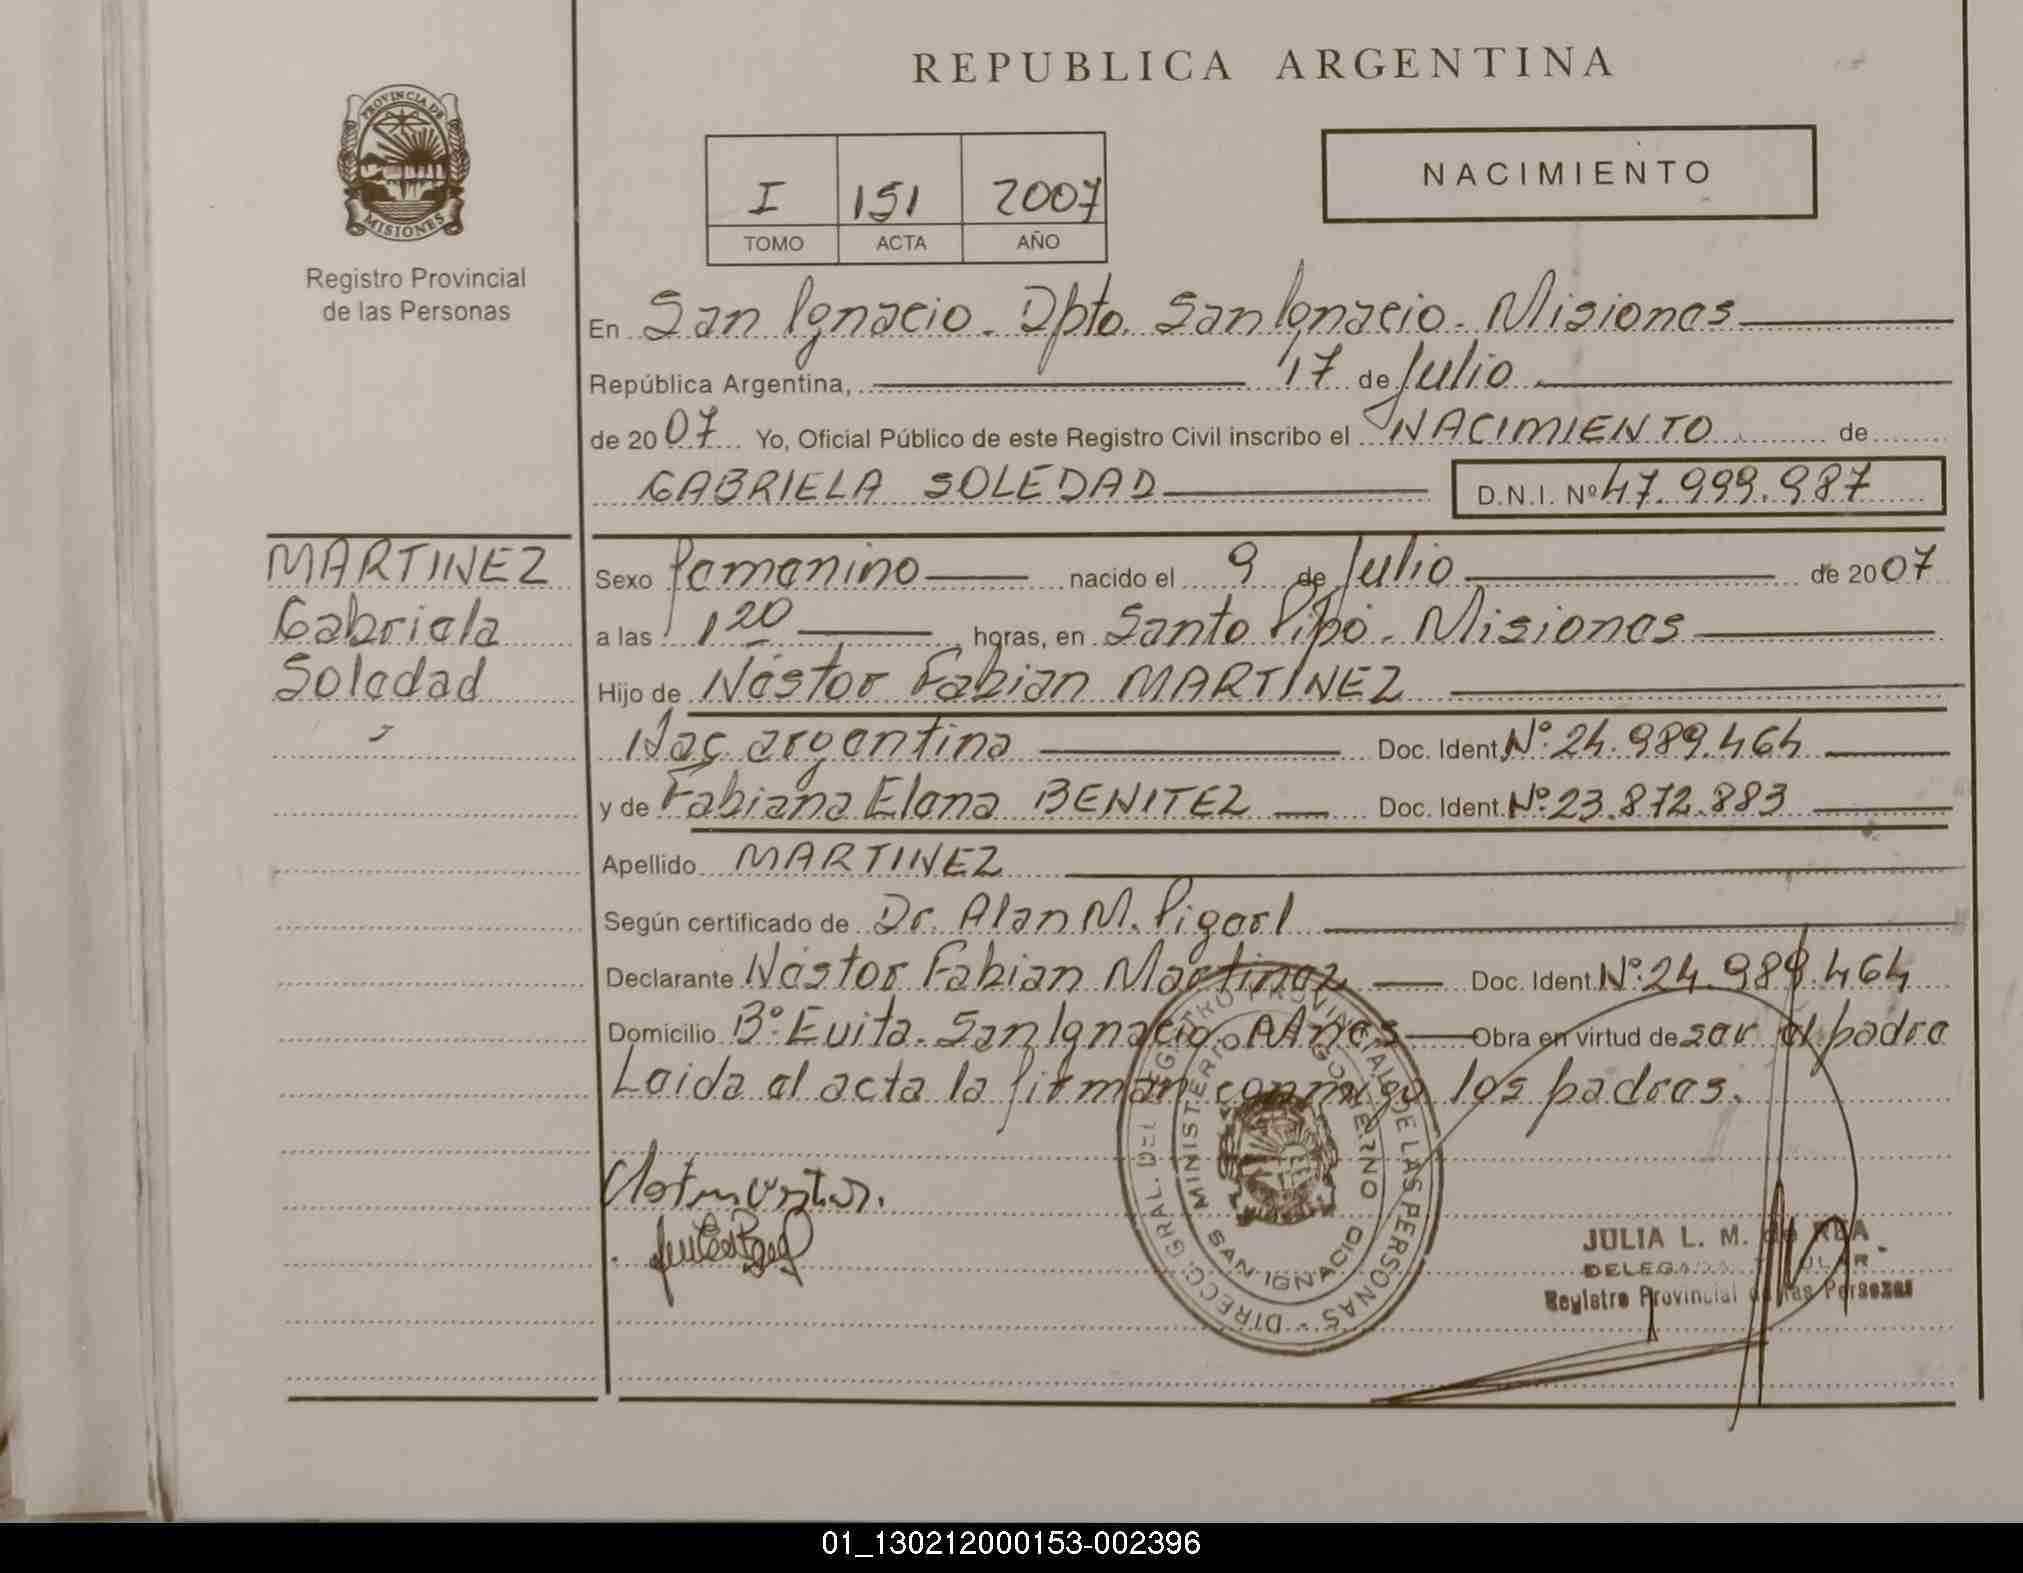 REPUBLICA ARGENTINA
PROVINCIA DE
MISIONES
Registro Provincial
de las Personas
NACIMIENTO
I 151 2007
TOMO ACTA AÑO
En San Ignacio. Dpto. San Ignacio. Misiones
República Argentina, 17 de Julio
de 2007 Yo, Oficial Público de este Registro Civil inscribo el NACIMIENTO de
GABRIELA SOLEDAD D.N.I. Nº 47.999.987
MARTINEZ
Gabriela
Soledad
Sexo femenino nacido el 9 de Julio de 2007
a las 1 20 horas, en Santo Pipó. Misiones
Hijo de Néstor Fabian MARTINEZ
Nac. argentina Doc. Ident. Nº. 24.989.464
y de Fabiana Elena BENITEZ Doc. Ident. Nº. 23.872.883
Apellido MARTINEZ
Según certificado de Dr. Alan M. Pigerl
Declarante Néstor Fabian Martinez Doc. Ident. Nº. 24.989.464
Domicilio Bº. Evita. San Ignacio. Mnes Obra en virtud de ser el padre
Leida el acta la firman conmigo los padres.
DIRECC. GRAL. DEL REGISTRO PROVINCIAL DE LAS PERSONAS
MINISTERIO DE GOBIERNO
SAN IGNACIO
JULIA L. M. de REA
DELEGADA TITULAR
Registro Provincial de las Personas
01_130212000153-002396